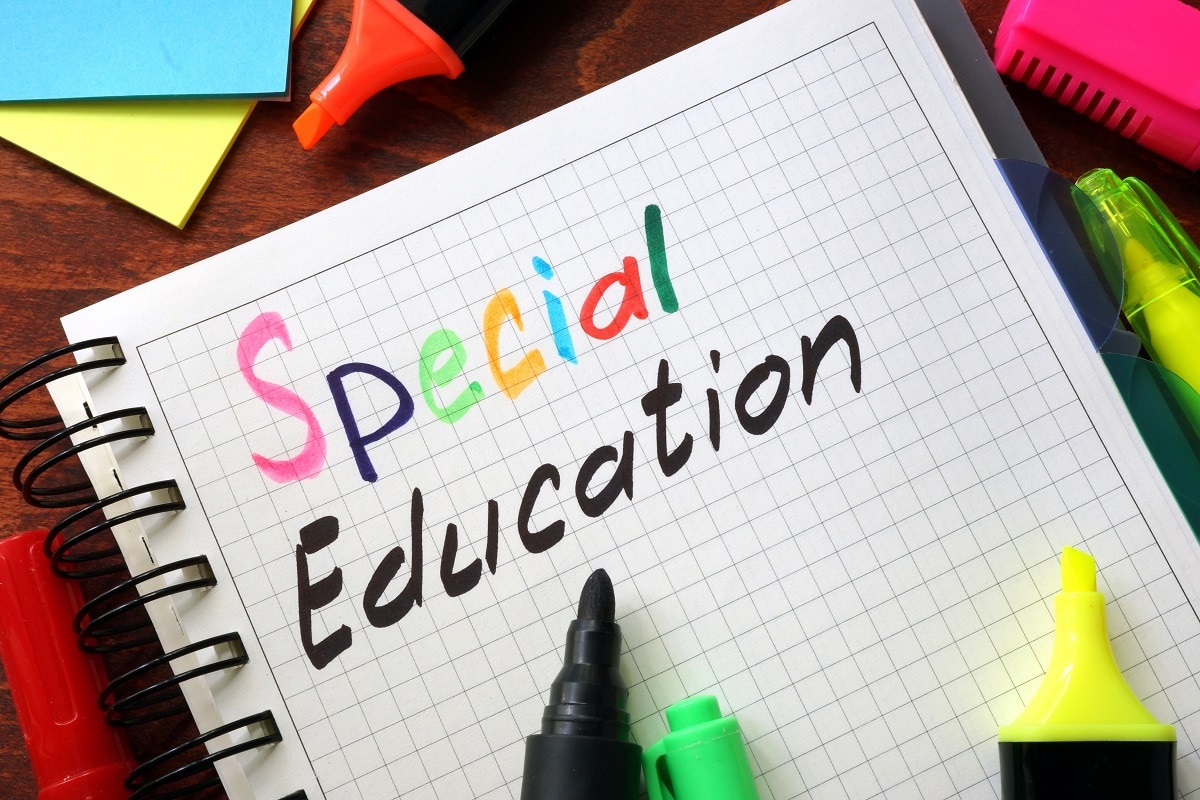 Special
Education